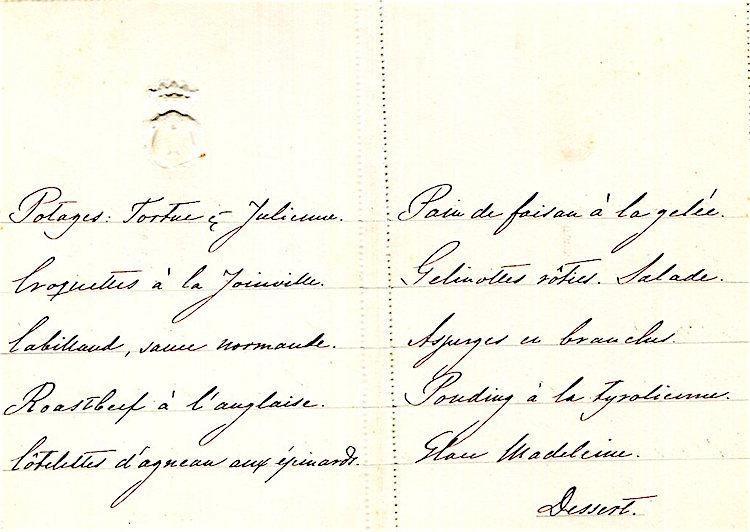 Potages: Tortue & Julienne.
Croquettes à la Joinville.
Cabillaud, sauce normande.
Roastbeef à l'anglaise.
Côtelettes d'agneau aux épinards.
Pain de faisan à la gelée.
Gelinottes rôties. Salade.
Asperges en branches.
Pouding à la tyrolienne.
Glace Madeleine.
Dessert.